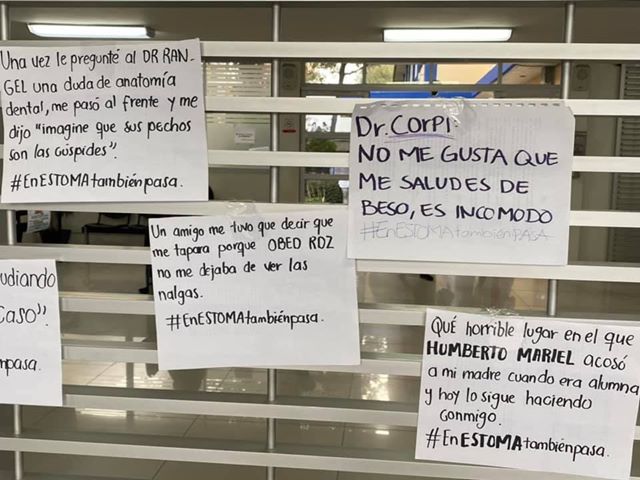 Una vez le pregunté al DR RAN-
GEL una duda de anatomía
dental, me pasó al frente y me
dijo "imagine que sus pechos
son las cúspides".
#EnESTOMAtambiénpasa.
Dr. CORPI
NO ME GUSTA QUE
ME SALUDES DE
BESO, ES INCOMODO
#EnESTOMAtambiénPASA
Un amigo me tuvo que decir que
me tapara porque OBED RDZ
no me dejaba de ver las
nalgas.
#EnESTOMAtambiénpasa.
udiando
caso".
npasa.
QUÉ horrible lugar en el que
HUMBERTO MARIEL acosó
a mi madre cuando era alumna
y hoy lo sigue haciendo
conmigo.
#EnESTOMAtambiénpasa.